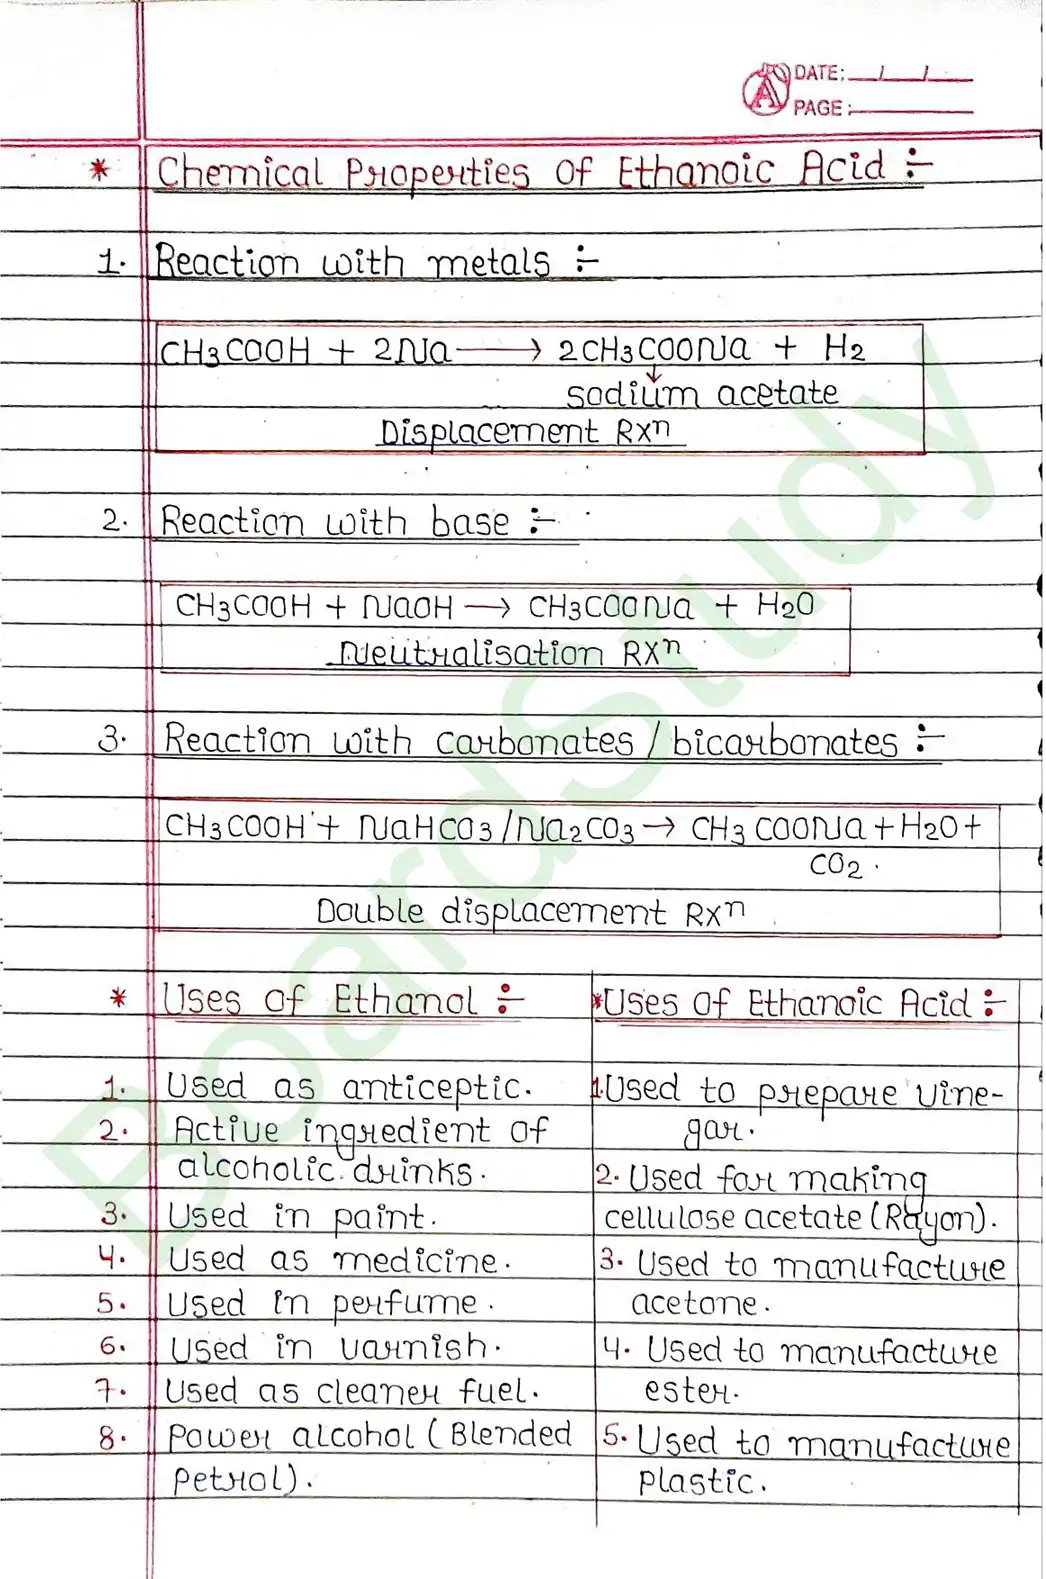 DATE: __/__/__
PAGE:
* Chemical Properties Of Ethanoic Acid :-
1. Reaction with metals :-
CH3COOH + 2Na ⟶ 2CH3COONa + H2
↓
sodium acetate
Displacement Rxⁿ
2. Reaction with base :-
CH3COOH + NaOH ⟶ CH3COONa + H2O
Neutralisation Rxⁿ
3. Reaction with carbonates / bicarbonates :-
CH3COOH + NaHCO3 / Na2CO3 → CH3COONa + H2O +
CO2.
Double displacement Rxⁿ
* Uses of Ethanol :-
1. Used as anticeptic.
2. Active ingredient of
alcoholic drinks.
3. Used in paint.
4. Used as medicine.
5. Used in perfume.
6. Used in varnish.
7. Used as cleaner fuel.
8. Power alcohol (Blended
Petrol).
* Uses Of Ethanoic Acid :-
1. Used to prepare vine-
gar.
2. Used for making
cellulose acetate (Rayon).
3. Used to manufacture
acetone.
4. Used to manufacture
ester.
5. Used to manufacture
plastic.
BoardStudy